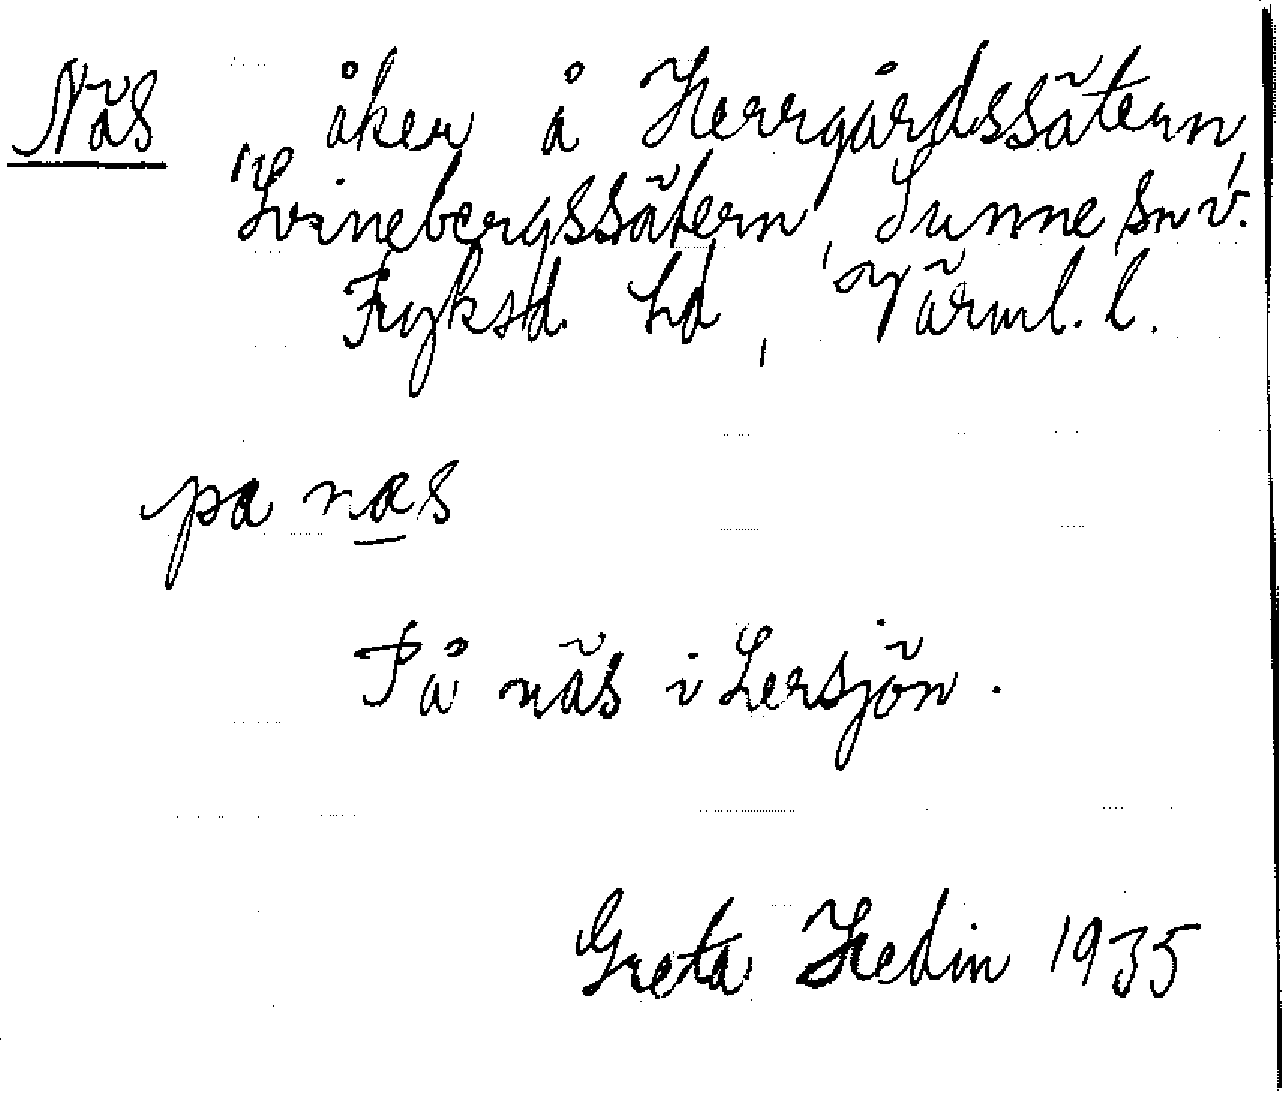 Näs åker å Herrgårdssätern,
Svinebergssätern, Sunne sn v.
Fryksd. hd, Värml. l.
pa næs
På näs i Lersjön.
Greta Hedin 1935